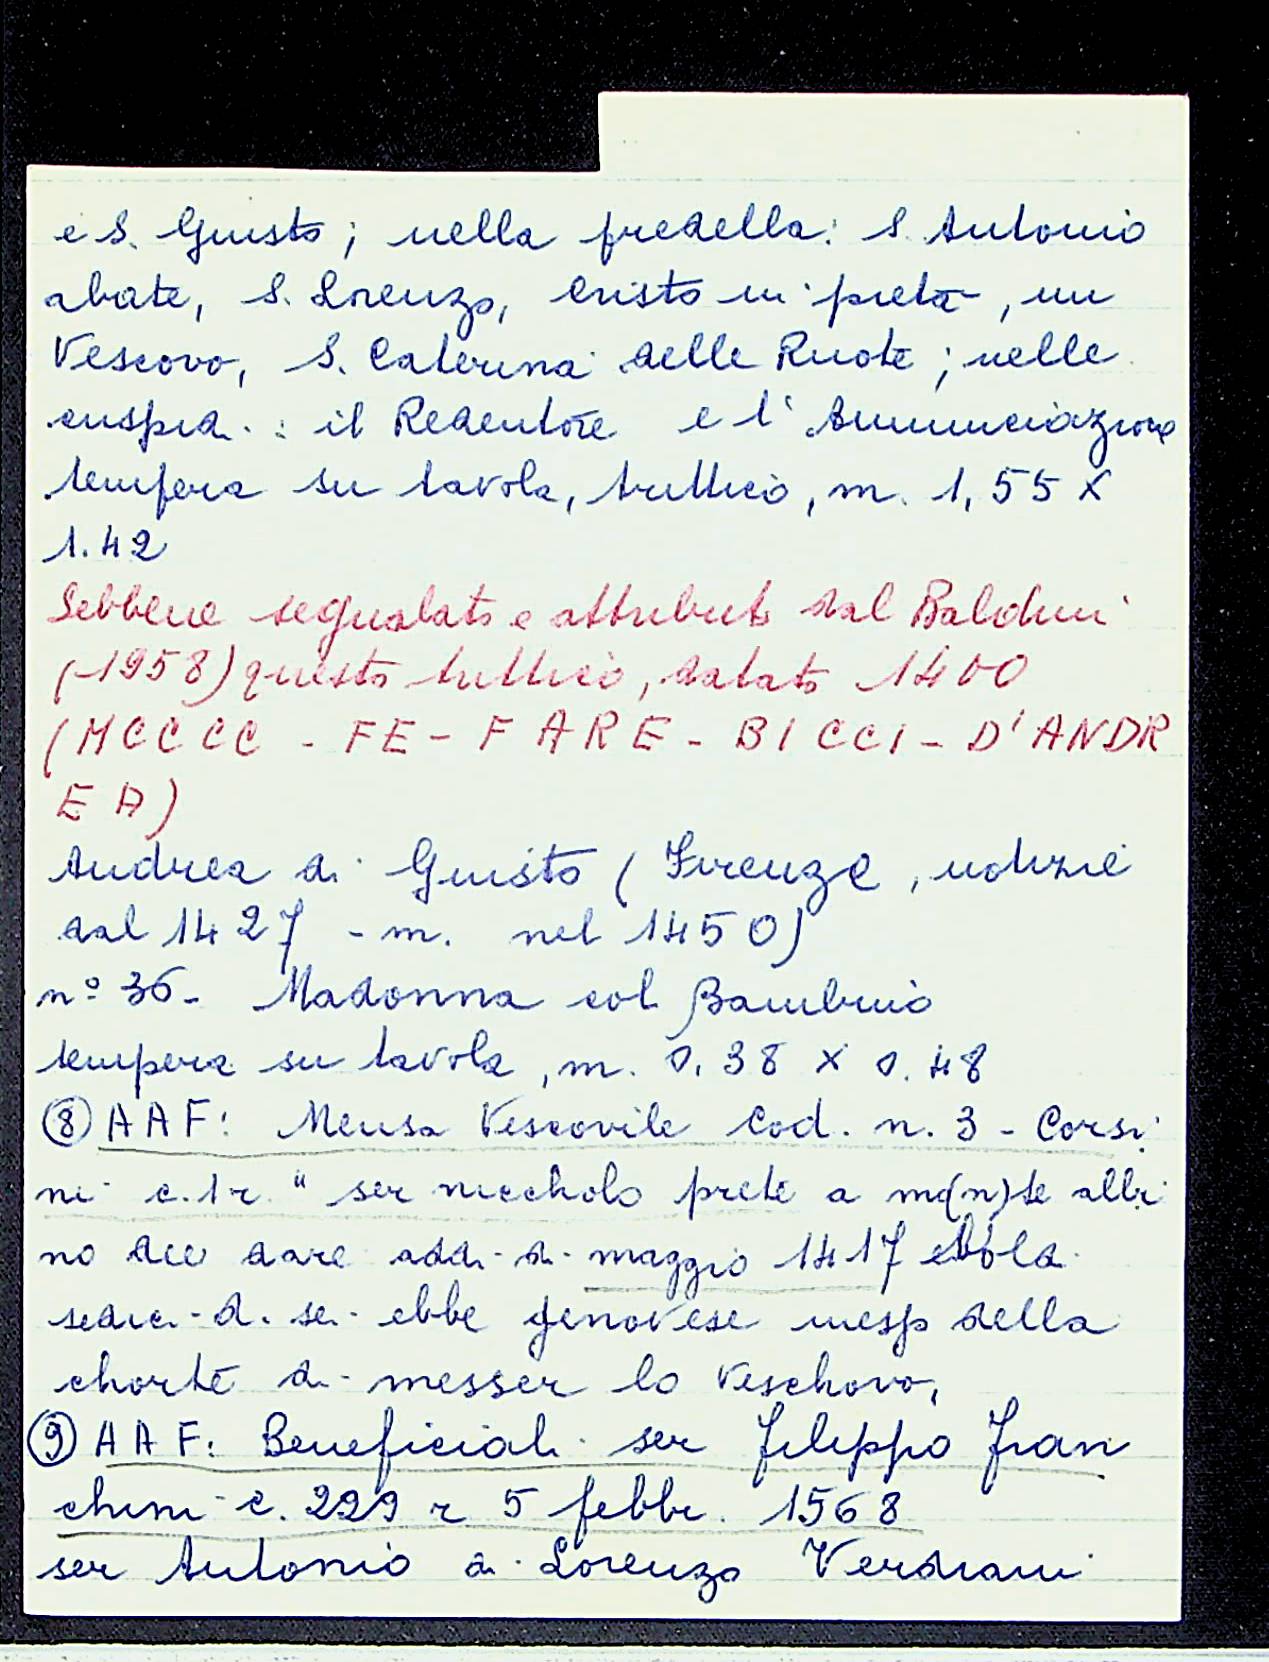 e S. Giusto; nella predella: S. Antonio
abate, S. Lorenzo, Cristo in pietà, un
Vescovo, S. Caterina delle Ruote; nelle
cuspidi: il Redentore e l'Annunciazione
tempera su tavola, trittico, m. 1,55 x
1.42
Sebbene segnalato e attribuito dal Baldini
(1958) questo trittico, datato 1400
(MCCCC - FE - FARE - BICCI - D'ANDR
EA)
Andrea di Giusto (Firenze, notizie
dal 1427 - m. nel 1450)
n° 36- Madonna col Bambino
tempera su tavola, m. 0.38 x 0.48
⑧ AAF: Mensa Vescovile Cod. n. 3 - Corsi
ni c. 1 r. " ser niccholo prete a mo(n)te albi
no dee dare addi di maggio 1417
sedici d. se ebbe genovese della
chorte di messer lo veschovo,
⑨ AAF: Beneficiali ser filippo fran
chini c. 229 r 5 febbr. 1568
ser Antonio di Lorenzo Verdiani